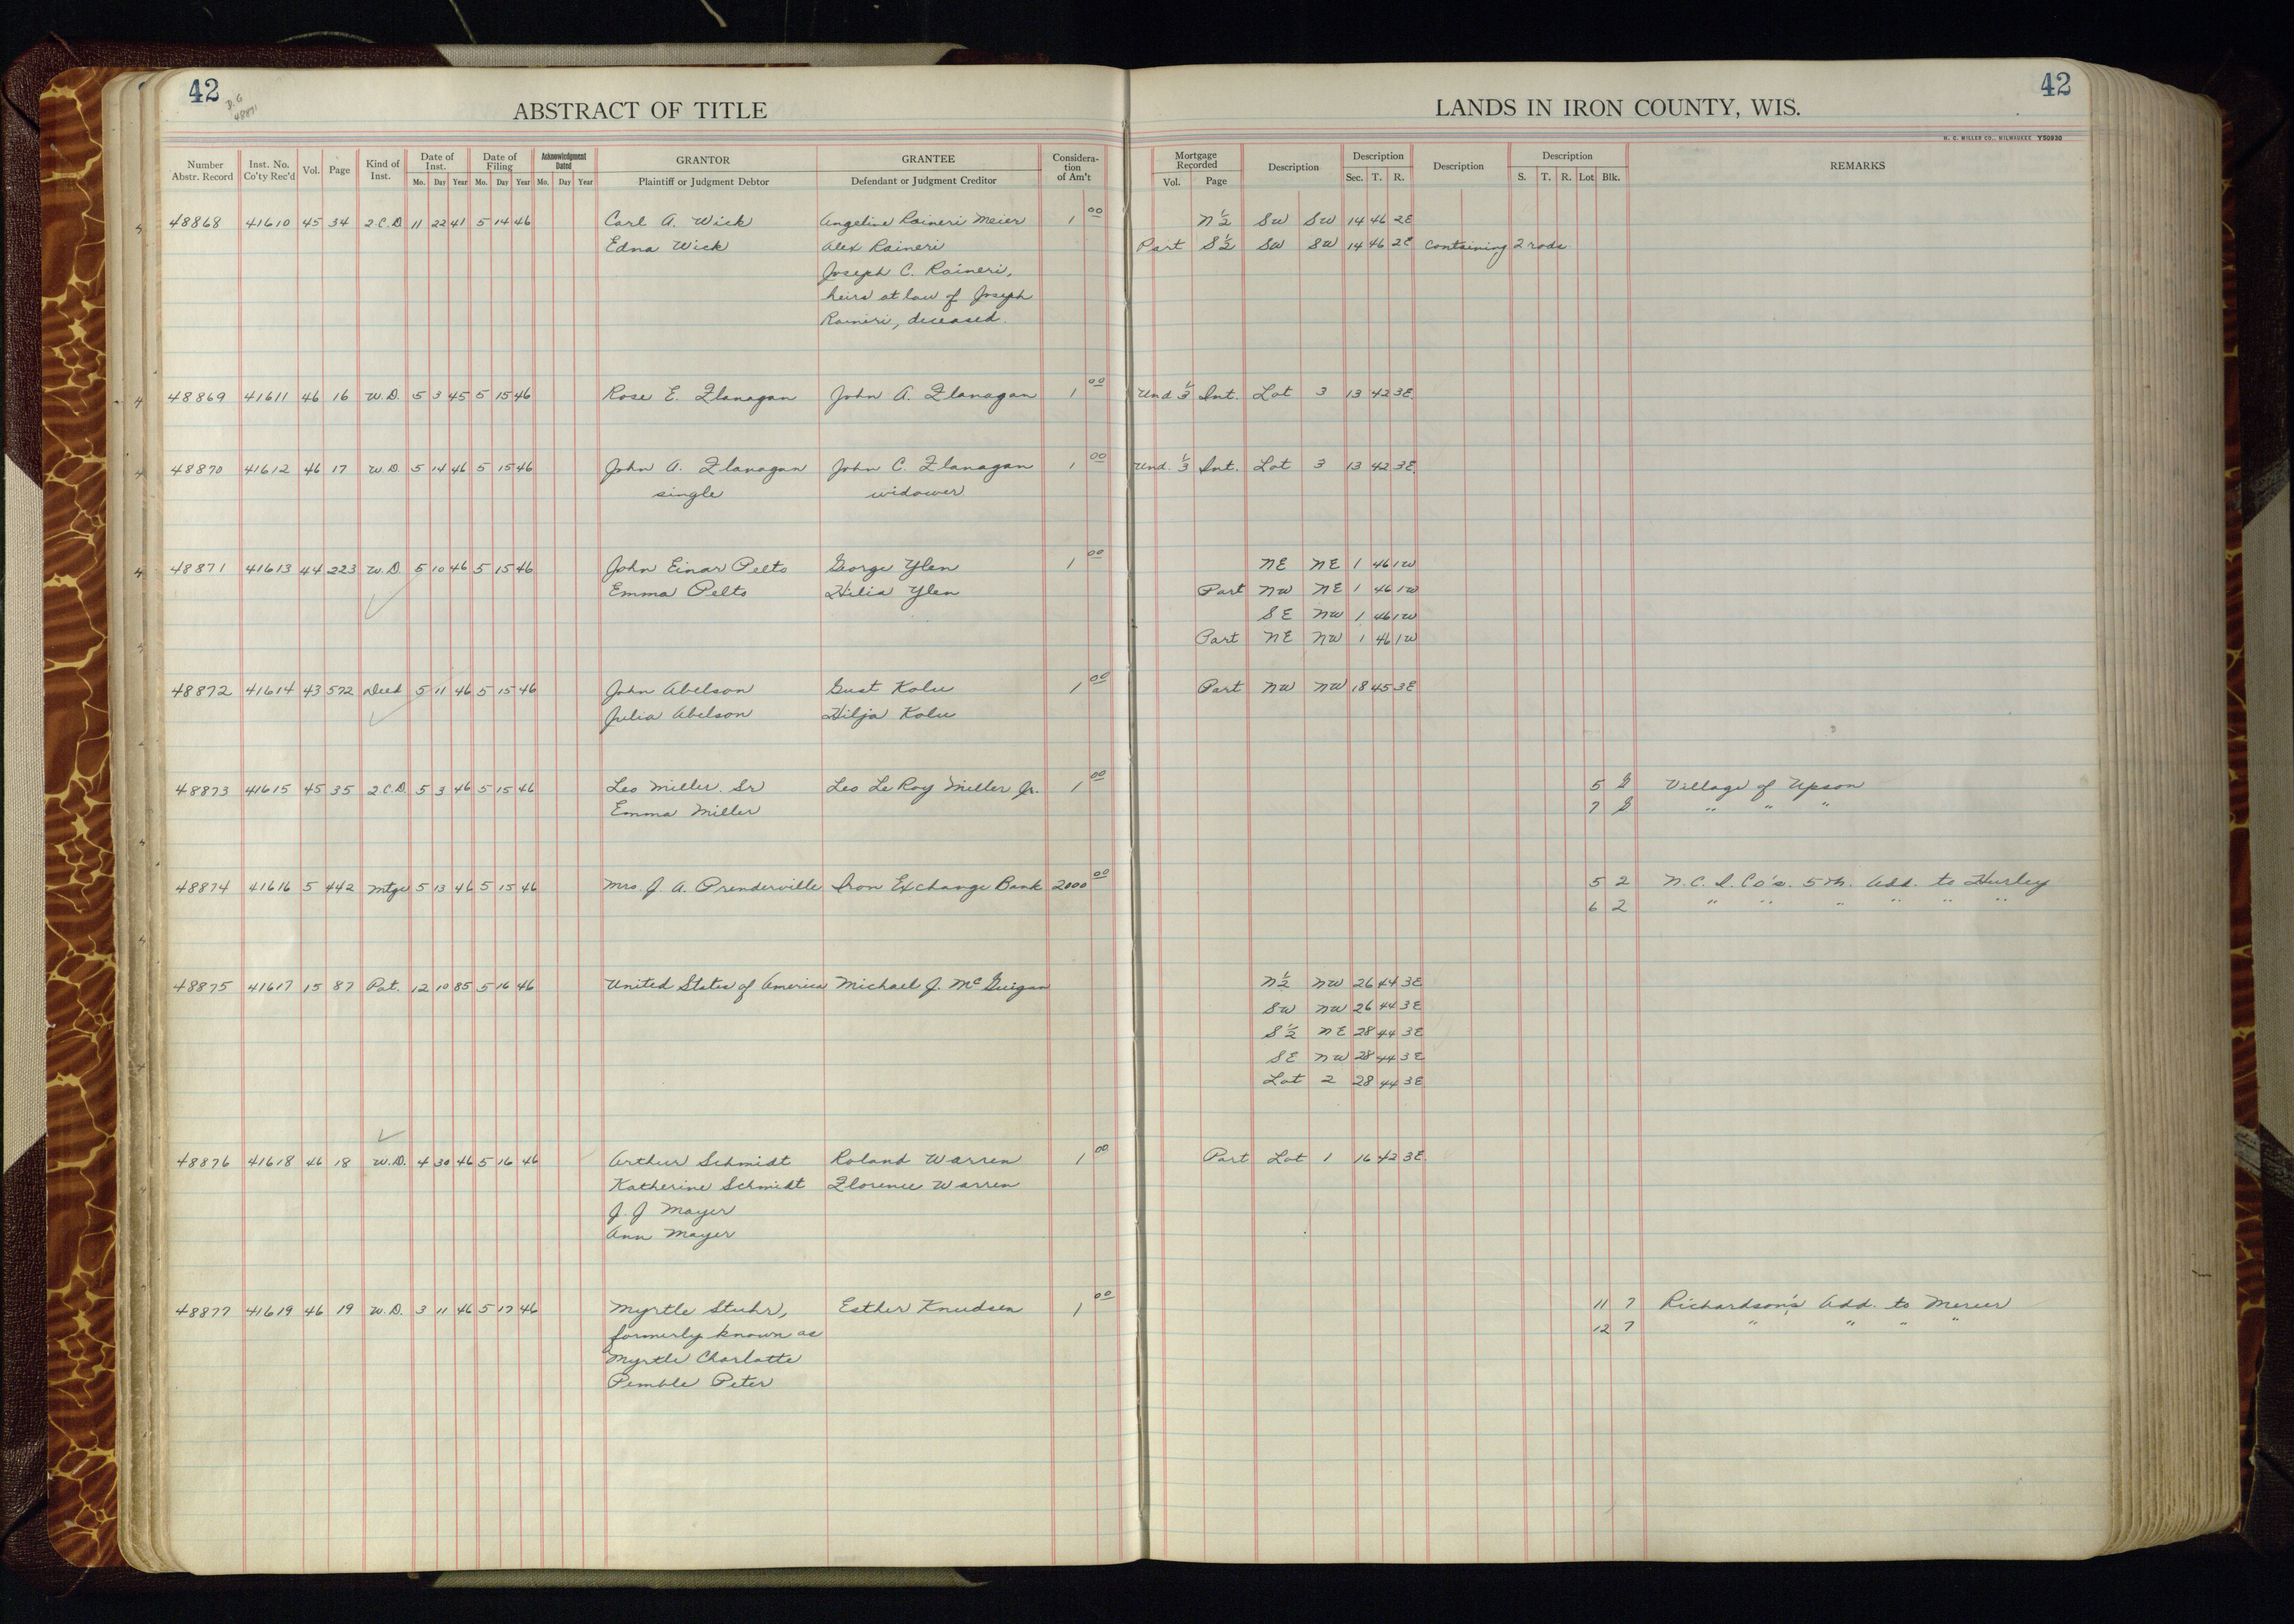 42
42
ABSTRACT OF TITLE
LANDS IN IRON COUNTY, WIS.
H. C. MILLER CO., MILWAUKEE Y50930
Number Abstr. Record Inst. No. Co'ty Rec'd Vol. Page Kind of Inst. Date of Inst. Mo. Day Year Date of Filing Mo. Day Year Acknowledgment Dated Mo. Day Year GRANTOR Plaintiff or Judgment Debtor GRANTEE Defendant or Judgment Creditor Consideration of Am't Mortgage Recorded Vol. Page Description Description Sec. T. R. Description Description S. T. R. Lot Blk. REMARKS
48868 41610 45 34 2.C.D 11 22 41 5 14 46 Carl A. Wick Angeline Raineri Meier 1 00 N½ SW SW 14 46 2E
Edna Wick Alex Raineri Part S½ SW SW 14 46 2E Containing 2 rods
Joseph C. Raineri,
heirs at law of Joseph
Raineri, deceased.
48869 41611 46 16 W.D. 5 3 45 5 15 46 Rose E. Flanagan John A. Flanagan 1 00 Und ⅓ Int. Lot 3 13 42 3E
48870 41612 46 17 W.D. 5 14 46 5 15 46 John A. Flanagan John C. Flanagan 1 00 Und. ⅓ Int. Lot 3 13 42 3E
single widower
48871 41613 44 223 W.D. 5 10 46 5 15 46 John Einar Pelto George Ylen 1 00 NE NE 1 46 1W
Emma Pelto Hilia Ylen Part NW NE 1 46 1W
SE NW 1 46 1W
Part NE NW 1 46 1W
48872 41614 43 572 Deed 5 11 46 5 15 46 John Abelson Gust Kolu 1 00 Part NW NW 18 45 3E
Julia Abelson Hilja Kolu
48873 41615 45 35 2.C.D. 5 3 46 5 15 46 Leo Miller Sr Leo LeRoy Miller Jr. 1 00 5 Village of Upson
Emma Miller 7 " " "
48874 41616 5 442 Mtge 5 13 46 5 15 46 Mrs. J. A. Prenderville Iron Exchange Bank 2000 00 5 2 N.C.I. Co's. 5th. Add. to Hurley
6 2 " " " " " "
48875 41617 15 87 Pat. 12 10 85 5 16 46 United States of America Michael J. McGuigan N½ NW 26 44 3E
SW NW 26 44 3E
S½ NE 28 44 3E
SE NW 28 44 3E
Lot 2 28 44 3E
48876 41618 46 18 W.D. 4 30 46 5 16 46 Arthur Schmidt Roland Warren 1 00 Part Lot 1 16 42 3E
Katherine Schmidt Florence Warren
J. J Mayer
Ann Mayer
48877 41619 46 19 W.D. 3 11 46 5 17 46 Myrtle Stuhr, Esther Knudsen 1 00 11 7 Richardson's Add. to Mercer
formerly known as 12 7 " " " "
Myrtle Charlotte
Pemble Peter